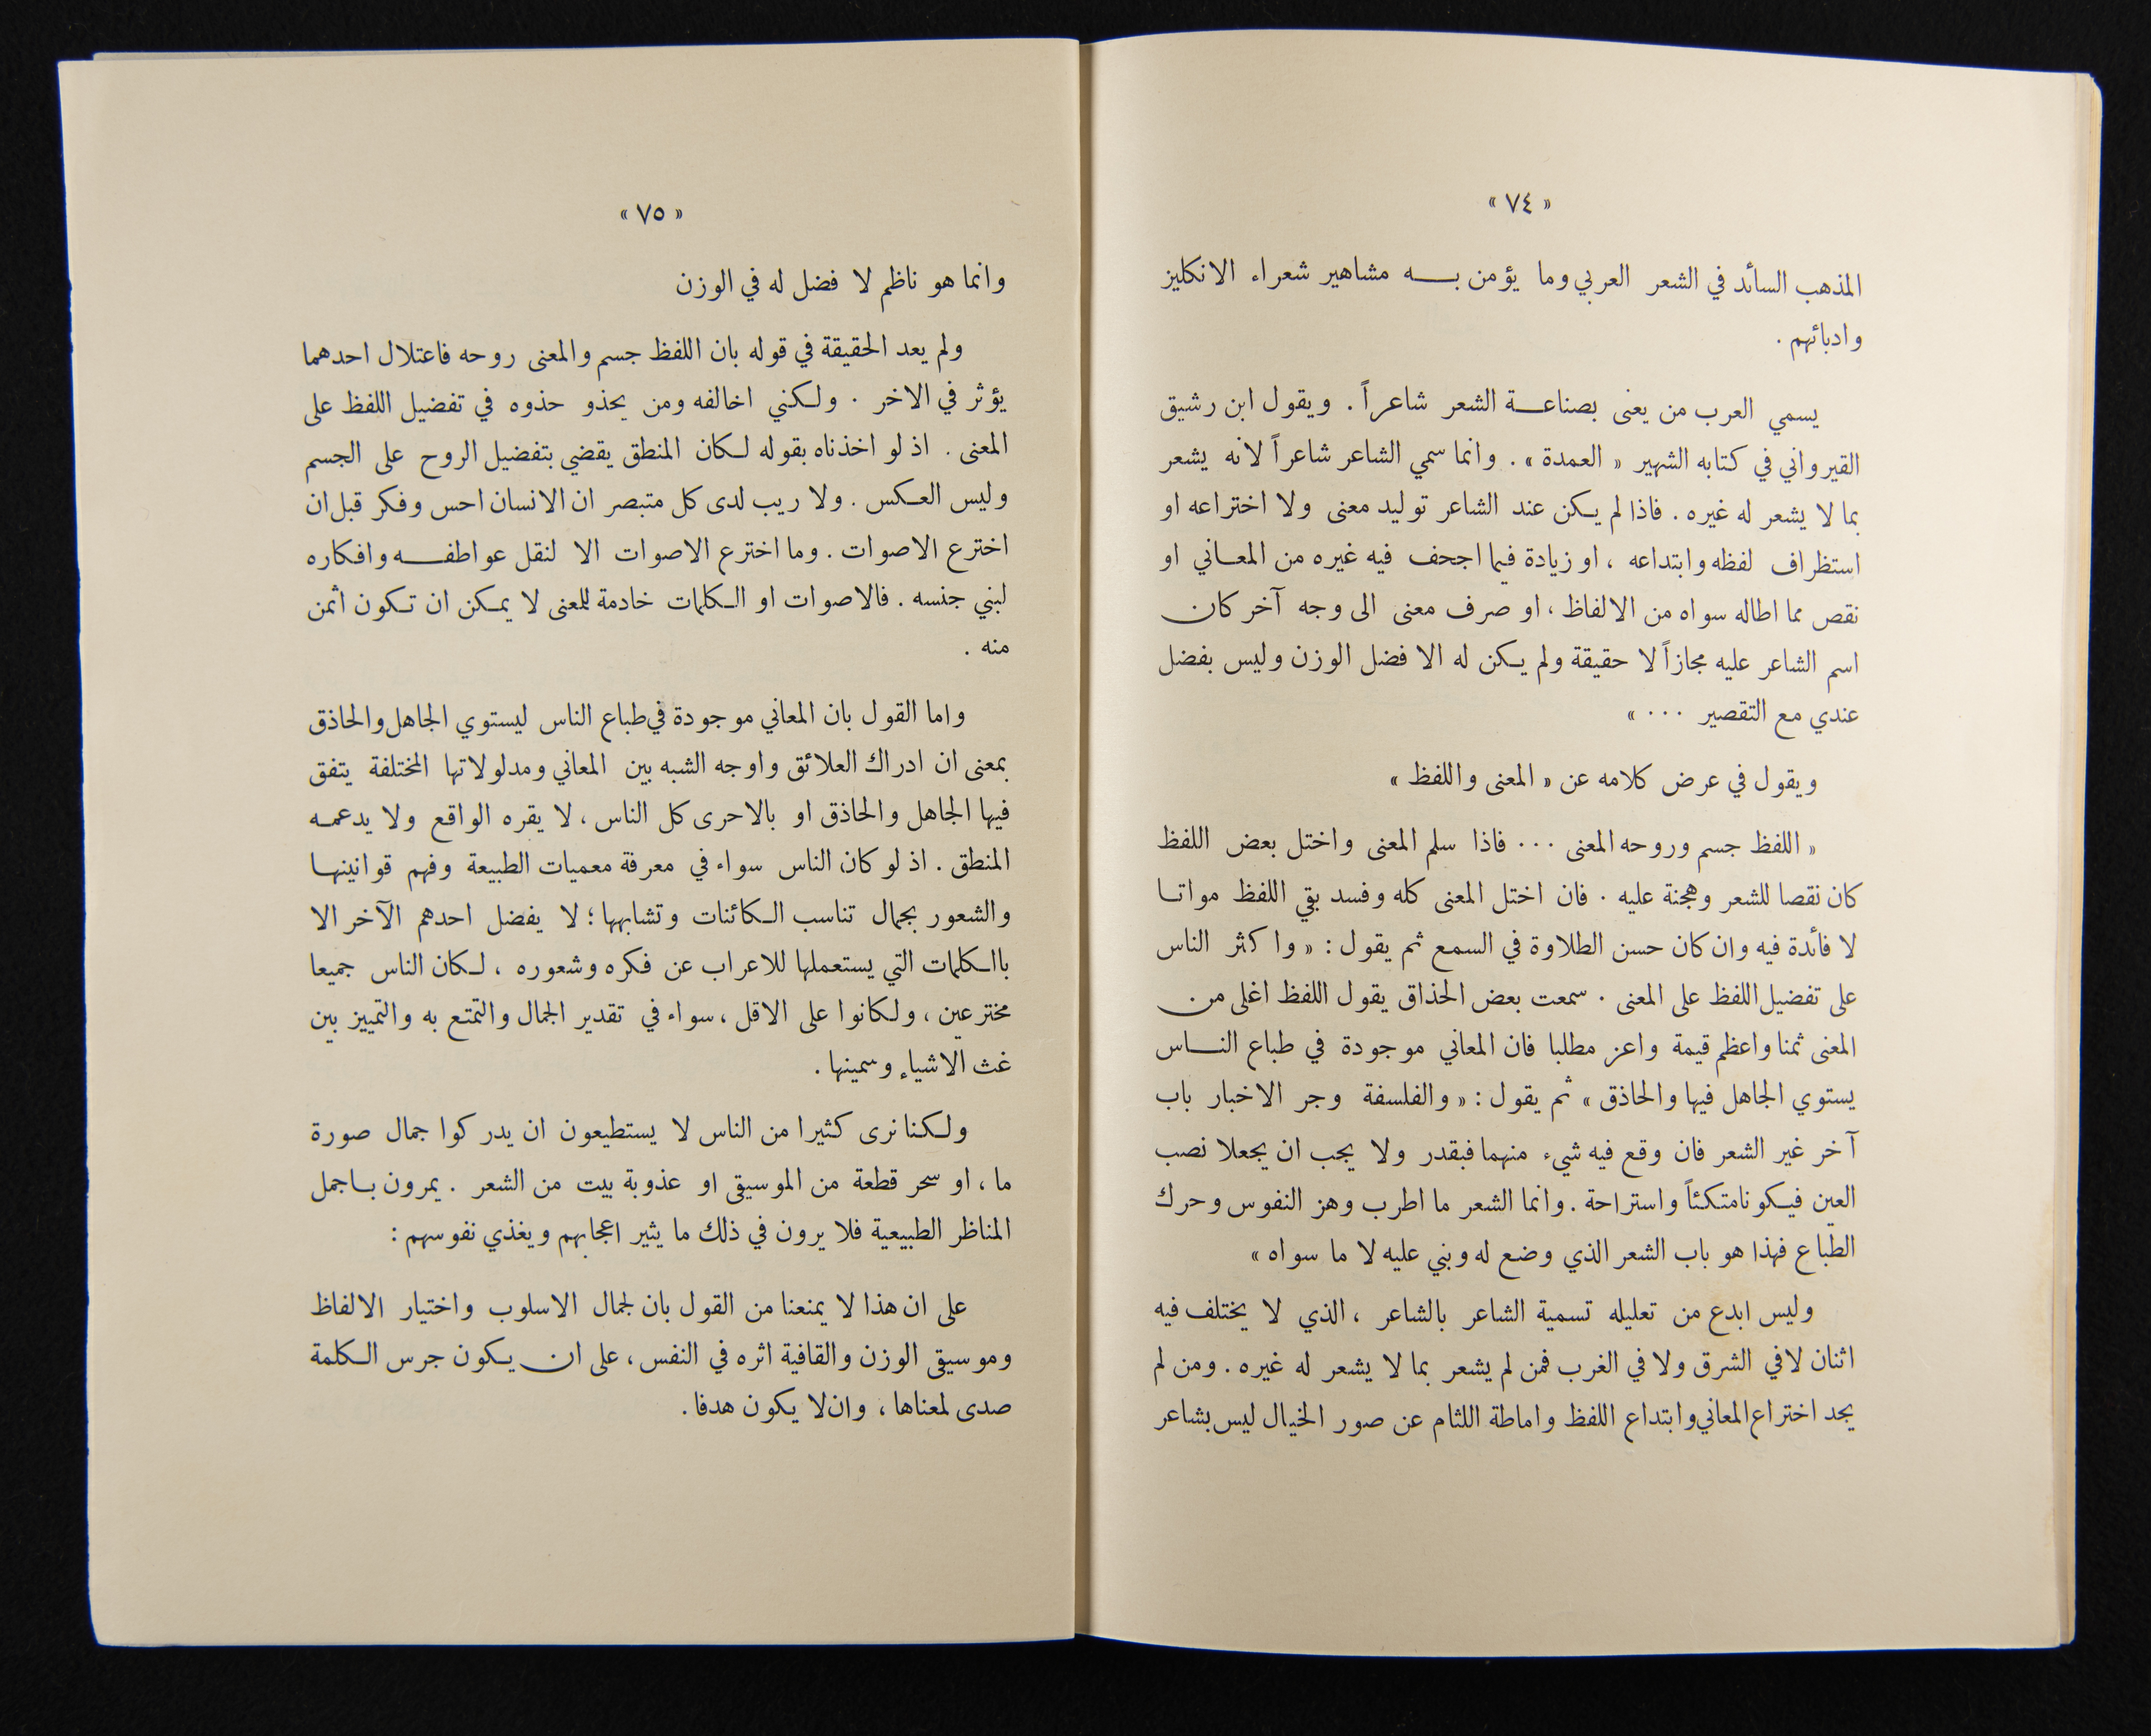 « ٧٤ »
المذهب السائد في الشعر العربي وما يؤمن به مشاهير شعراء الانكليز
وادبائهم .
يسمي العرب من يعنى بصناعة الشعر شاعراً . ويقول ابن رشيق
القيرواني في كتابه الشهير « العمدة » . وانما سمي الشاعر شاعراً لانه يشعر
بما لا يشعر له غيره . فاذا لم يكن عند الشاعر توليد معنى ولا اختراعه او
استظراف لفظه وابتداعه ، او زيادة فيما اجحف فيه غيره من المعاني او
نقص مما اطاله سواه من الالفاظ ، او صرف معنى الى وجه آخر كان
اسم الشاعر عليه مجازاً لا حقيقة ولم يكن له الا فضل الوزن وليس بفضل
عندي مع التقصير ... »
ويقول في عرض كلامه عن « المعنى واللفظ »
« اللفظ جسم وروحه المعنى ... فاذا سلم المعنى واختل بعض اللفظ
كان نقصا للشعر وهجنة عليه . فان اختل المعنى كله وفسد بقي اللفظ مواتا
لا فائدة فيه وان كان حسن الطلاوة في السمع ثم يقول : « واكثر الناس
على تفضيل اللفظ على المعنى . سمعت بعض الحذاق يقول اللفظ اغلى من
المعنى ثمنا واعظم قيمة واعز مطلبا فان المعاني موجودة في طباع الناس
يستوي الجاهل فيها والحاذق » ثم يقول : « والفلسفة وجر الاخبار باب
آخر غير الشعر فان وقع فيه شيء منهما فبقدر ولا يجب ان يجعلا نصب
العين فيكونا متكئاً واستراحة . وانما الشعر ما اطرب وهز النفوس وحرك
الطباع فهذا هو باب الشعر الذي وضع له وبني عليه لا ما سواه »
وليس ابدع من تعليله تسمية الشاعر بالشاعر ، الذي لا يختلف فيه
اثنان لا في الشرق ولا في الغرب فمن لم يشعر بما لا يشعر له غيره . ومن لم
يجد اختراع المعاني وابتداع اللفظ واماطة اللثام عن صور الخيال ليس بشاعر
« ٧٥ »
وانما هو ناظم لا فضل له في الوزن
ولم يعد الحقيقة في قوله بان اللفظ جسم والمعنى روحه فاعتلال احدهما
يؤثر في الاخر . ولكني اخالفه ومن يحذو حذوه في تفضيل اللفظ على
المعنى . اذ لو اخذناه بقوله لكان المنطق يقضي بتفضيل الروح على الجسم
وليس العكس . ولا ريب لدى كل متبصر ان الانسان احس وفكر قبل ان
اخترع الاصوات . وما اخترع الاصوات الا لنقل عواطفه وافكاره
لبني جنسه . فالاصوات او الكلمات خادمة للمعنى لا يمكن ان تكون اثمن
منه .
واما القول بان المعاني موجودة في طباع الناس ليستوي الجاهل والحاذق
بمعنى ان ادراك العلائق واوجه الشبه بين المعاني ومدلولاتها المختلفة يتفق
فيها الجاهل والحاذق او بالاحرى كل الناس ، لا يقره الواقع ولا يدعمه
المنطق . اذ لو كان الناس سواء في معرفة معميات الطبيعة وفهم قوانينها
والشعور بجمال تناسب الكائنات وتشابهها ؛ لا يفضل احدهم الآخر الا
باالكلمات التي يستعملها للاعراب عن فكره وشعوره ، لكان الناس جميعا
مخترعين ، ولكانوا على الاقل ، سواء في تقدير الجمال والتمتع به والتمييز بين
غث الاشياء وسمينها .
ولكنا نرى كثيرا من الناس لا يستطيعون ان يدركوا جمال صورة
ما ، او سحر قطعة من الموسيقى او عذوبة بيت من الشعر . يمرون باجمل
المناظر الطبيعية فلا يرون في ذلك ما يثير اعجابهم ويغذي نفوسهم :
على ان هذا لا يمنعنا من القول بان لجمال الاسلوب واختيار الالفاظ
وموسيقى الوزن والقافية اثره في النفس ، على ان يكون جرس الكلمة
صدى لمعناها ، وان لا يكون هدفا .